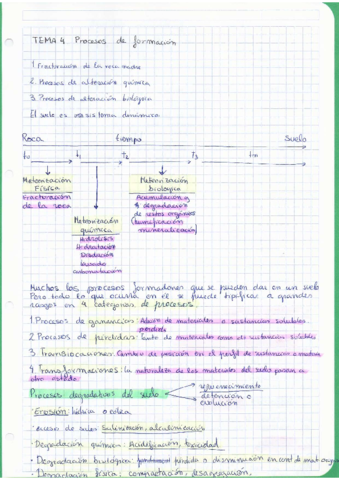 TEMA 4 Procesos de formación
1. Fracturación de la roca madre
2. Procesos de alteración química
3. Procesos de alteración biológica
El suelo es ecosistema dinámico
Roca tiempo Suelo
t0 t1 t2 T3 tm
Meteorización Física
Fracturación de la roca
Meteorización química
Hidrólisis
Hidratación
Oxidación
lavado
carbonatación
Meteorización biológica
Acumulación y
degradación
de restos orgánicos
(humificación
mineralización)
Muchos los procesos formadores que se pueden dar en un suelo
Pero todo lo que ocurra en él se puede tipificar a grandes
rasgos en 4 categorías de procesos.
1 Procesos de ganancias: de materiales o sustancias solubles
2 Procesos de pérdidas: tanto de materiales como de sustancias solubles
3 Translocaciones: Cambio de posición en el perfil de sustancias o
4 Transformaciones: la naturaleza de los materiales del suelo pasan a
otro estado
Procesos degradativos del suelo
rejuvenecimiento
detención o
evolución
· Erosión: hídrica o eólica
· exceso de sales Salinización, alcalinización
· Degradación química: Acidificación, toxicidad
· Degradación biológica: pérdida o disminución en cont de mat orgánica
· Degradación física: compactación,